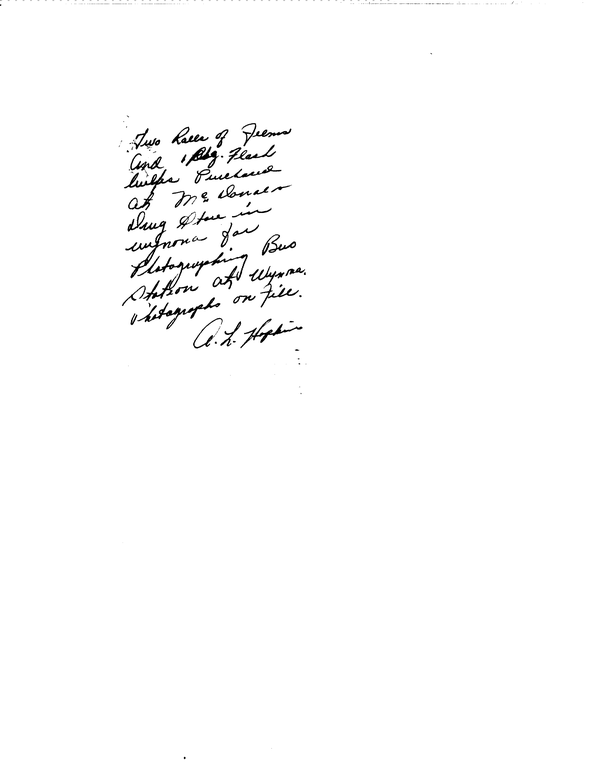 Two Rolls of Films
and 1 Pkg. Flash
bulbs Purchased
at McDonald
Drug Store in
Wynona for
Photographing Bus
Station at Wynona.
Photographs on File.
A. L. Hopkins